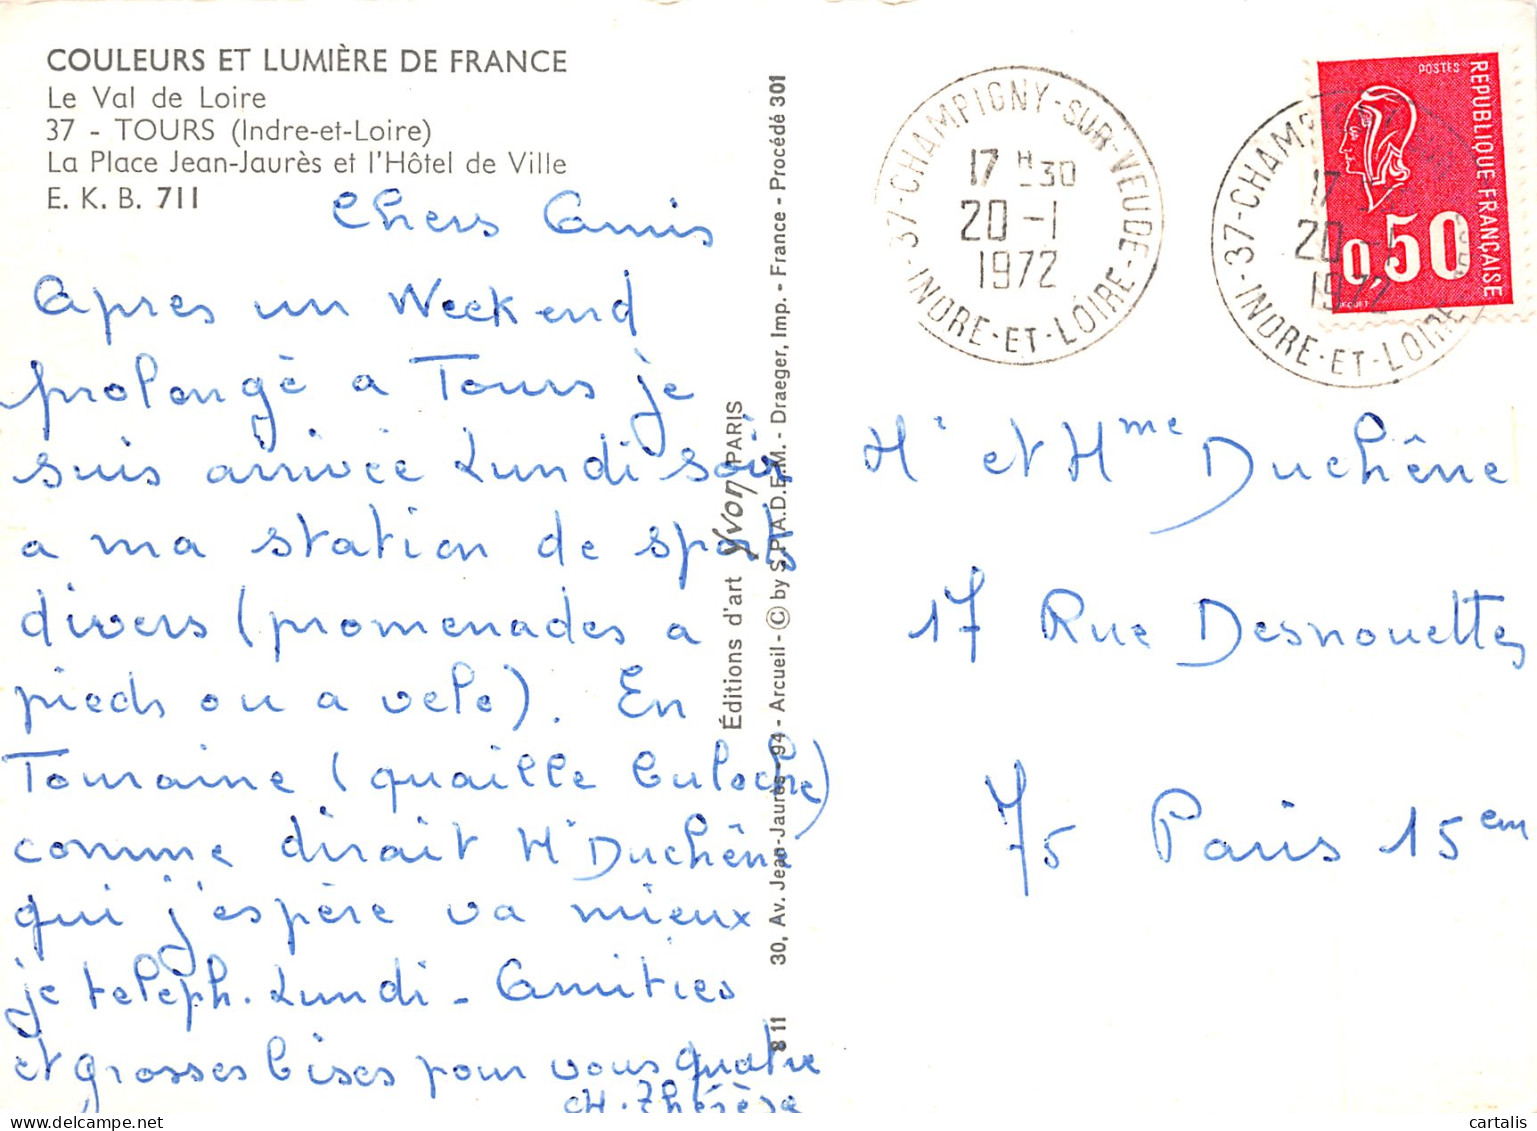 COULEURS ET LUMIÈRE DE FRANCE
Le Val de Loire
37 - TOURS (Indre-et-Loire)
La Place Jean-Jaurès et l'Hôtel de Ville
E. K. B. 711
Chers Amis
Apres un Week end
prolongè a Tours je
suis arrivée Lundi soir
a ma station de sports
divers (promenades a
pieds ou a velo). En
Touraine (quaille
comme dirait Mr Duchêne
qui j'espère va mieux
je teleph. Lundi - Amities
et grosses bises pour vous quatre
M. Thérèse
Éditions d'art Yvon PARIS
30, Av. Jean-Jaurès - 94 - Arcueil - © by S.P.A.D.E.M. - Draeger, Imp. - France - Procédé 301
8 11
37-CHAMPIGNY-SUR-VEUDE
17 H 30
20 -1
1972
INDRE-ET-LOIRE
37-CHAMPIGNY
17
20 -1
1972
INDRE-ET-LOIRE
POSTES
REPUBLIQUE FRANÇAISE
0,50
BEQUET
Mr et Mme Duchêne
17 Rue Desnouettes
75 Paris 15em
cartalis
www.delcampe.net